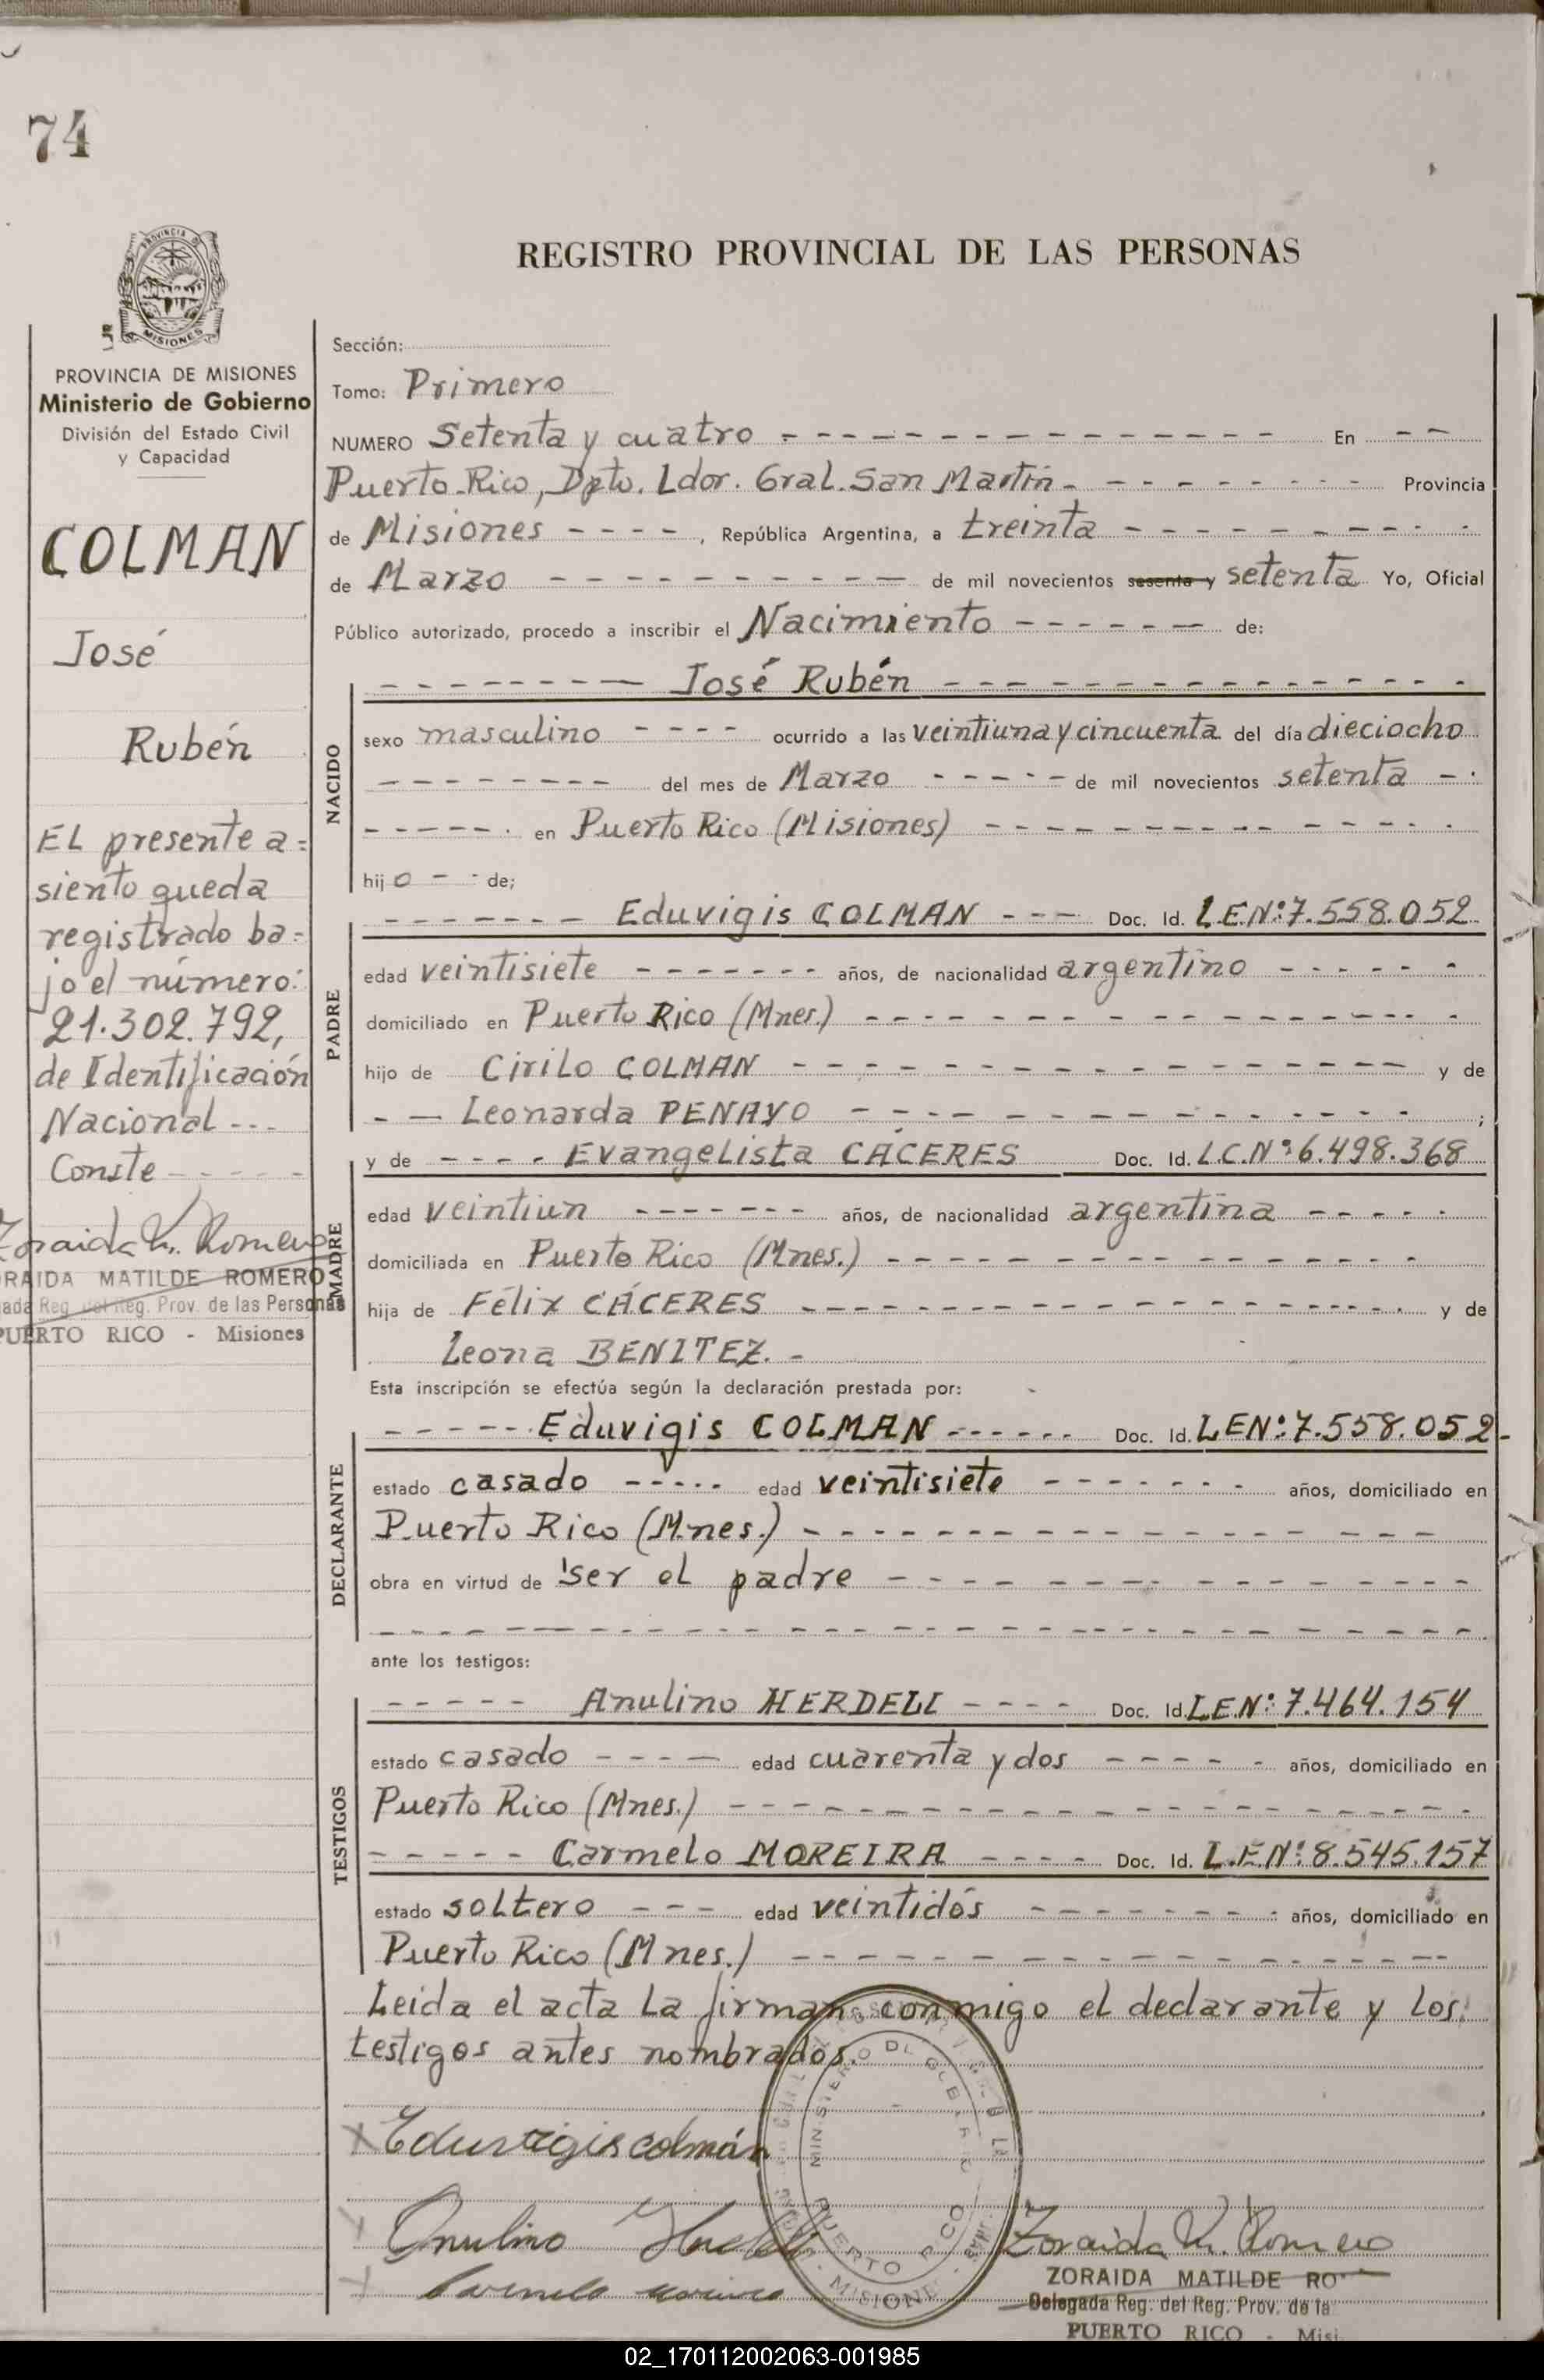 74
REGISTRO PROVINCIAL DE LAS PERSONAS
MISIONES
PROVINCIA DE MISIONES
Ministerio de Gobierno
División del Estado Civil
y Capacidad
COLMAN
José
Rubén
EL presente a=
siento queda
registrado ba=
jo el número:
21.302.792,
de Identificación
Nacional ---
Conste - - - - -
Zoraida M. Romero
RAIDA MATILDE ROMERO
ada Reg. del Reg. Prov. de las Personas
PUERTO RICO - Misiones
Sección:
Tomo: Primero
NUMERO Setenta y cuatro - - - - - - - - - - - - - - - - En - -
Puerto Rico, Dpto. Ldor. Gral. San Martín - - - - - - - - - Provincia
de Misiones - - - - , República Argentina, a treinta - - - - - - - - - - -
de Marzo - - - - - - - - - - - de mil novecientos sesenta y setenta Yo, Oficial
Público autorizado, procedo a inscribir el Nacimiento - - - - - - - de:
NACIDO
- - - - - - - - José Rubén - - - - - - - - - - - - - - - - -
sexo masculino - - - - ocurrido a las veintiuna y cincuenta del día dieciocho
- - - - - - - - del mes de Marzo - - - - - de mil novecientos setenta - -
- - - - - - en Puerto Rico (Misiones) - - - - - - - - - - - - - -
hijo - - de;
PADRE
- - - - - - - Eduvigis COLMAN - - - Doc. Id. L.E.Nº:7.558.052
edad veintisiete - - - - - - - años, de nacionalidad argentino - - - - - -
domiciliado en Puerto Rico (Mnes.) - - - - - - - - - - - - - - - -
hijo de Cirilo COLMAN - - - - - - - - - - - - - - - - - y de
- - Leonarda PENAYO - - - - - - - - - - - - - - - ;
MADRE
y de - - - - Evangelista CÁCERES Doc. Id. L.C.Nº:6.498.368
edad veintiun - - - - - - - años, de nacionalidad argentina - - - - -
domiciliada en Puerto Rico (Mnes.) - - - - - - - - - - - - - - -
hija de Félix CÁCERES - - - - - - - - - - - - - - - - - y de
Leona BENITEZ. -
Esta inscripción se efectúa según la declaración prestada por:
DECLARANTE
- - - - - Eduvigis COLMAN - - - - - - Doc. Id. L.E.Nº:7.558.052-
estado casado - - - - - edad veintisiete - - - - - - - años, domiciliado en
Puerto Rico (Mnes.) - - - - - - - - - - - - - - - - - -
obra en virtud de ser el padre - - - - - - - - - - - - - - - -
- - - - - - - - - - - - - - - - - - - - - - - - - - - -
ante los testigos:
TESTIGOS
- - - - - Anulino HERDELL - - - - Doc. Id. L.E.Nº:7.464.154
estado casado - - - - edad cuarenta y dos - - - - - - años, domiciliado en
Puerto Rico (Mnes.) - - - - - - - - - - - - - - - - - - -
- - - - - Carmelo MOREIRA - - - - - Doc. Id. L.E.Nº:8.545.157
estado soltero - - - edad veintidós - - - - - - - - años, domiciliado en
Puerto Rico (Mnes.) - - - - - - - - - - - - - - - - -
Leida el acta La firman conmigo el declarante y los
testigos antes nombrados.
MINISTERIO DE GOBIERNO
PUERTO RICO
MISIONES
Eduvigis colmán
Anulino Herdell
Carmelo Moreira
Zoraida M. Romero
ZORAIDA MATILDE RO
Delegada Reg. del Reg. Prov. de la
PUERTO RICO - Misi
02_170112002063-001985